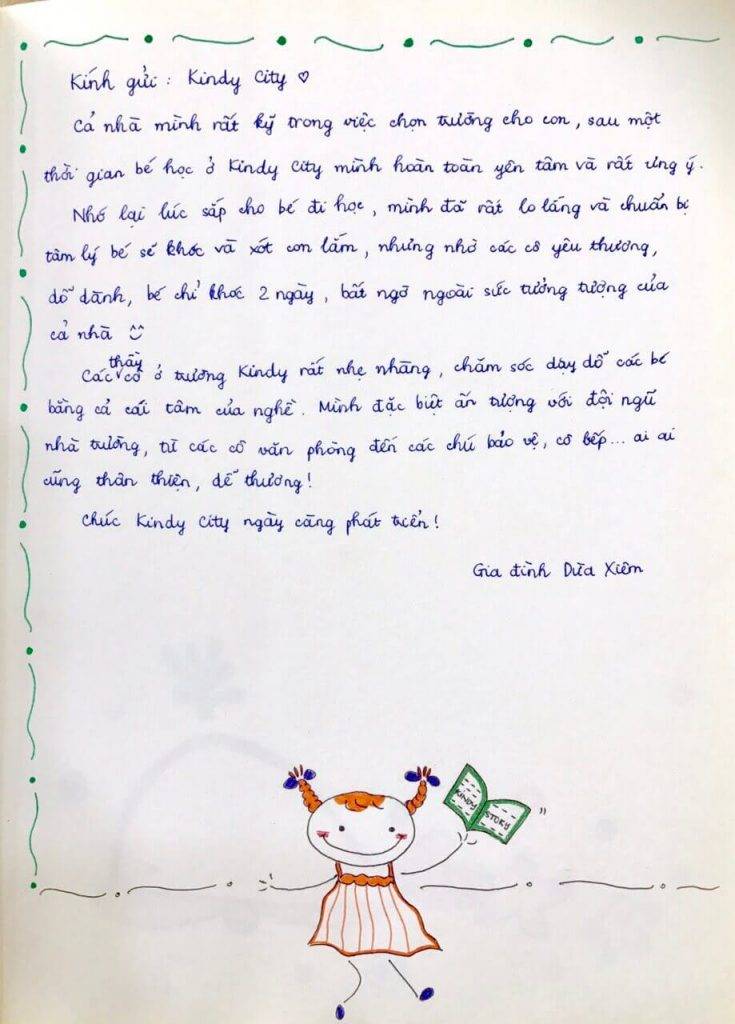 Kính gửi : Kindy City ♡
Cả nhà mình rất kỹ trong việc chọn trường cho con, sau một
thời gian bé học ở Kindy City mình hoàn toàn yên tâm và rất ưng ý.
Nhớ lại lúc sắp cho bé đi học, mình đã rất lo lắng và chuẩn bị
tâm lý bé sẽ khóc và xót con lắm, nhưng nhờ các cô yêu thương,
dỗ dành, bé chỉ khóc 2 ngày, bất ngờ ngoài sức tưởng tượng của
cả nhà ^^
Các thầy cô ở trường Kindy rất nhẹ nhàng, chăm sóc dạy dỗ các bé
bằng cả cái tâm của nghề. Mình đặc biệt ấn tượng với đội ngũ
nhà trường, từ các cô văn phòng đến các chú bảo vệ, cô bếp... ai ai
cũng thân thiện, dễ thương!
Chúc Kindy City ngày càng phát triển!
Gia đình Dừa Xiêm
KINDY STORY